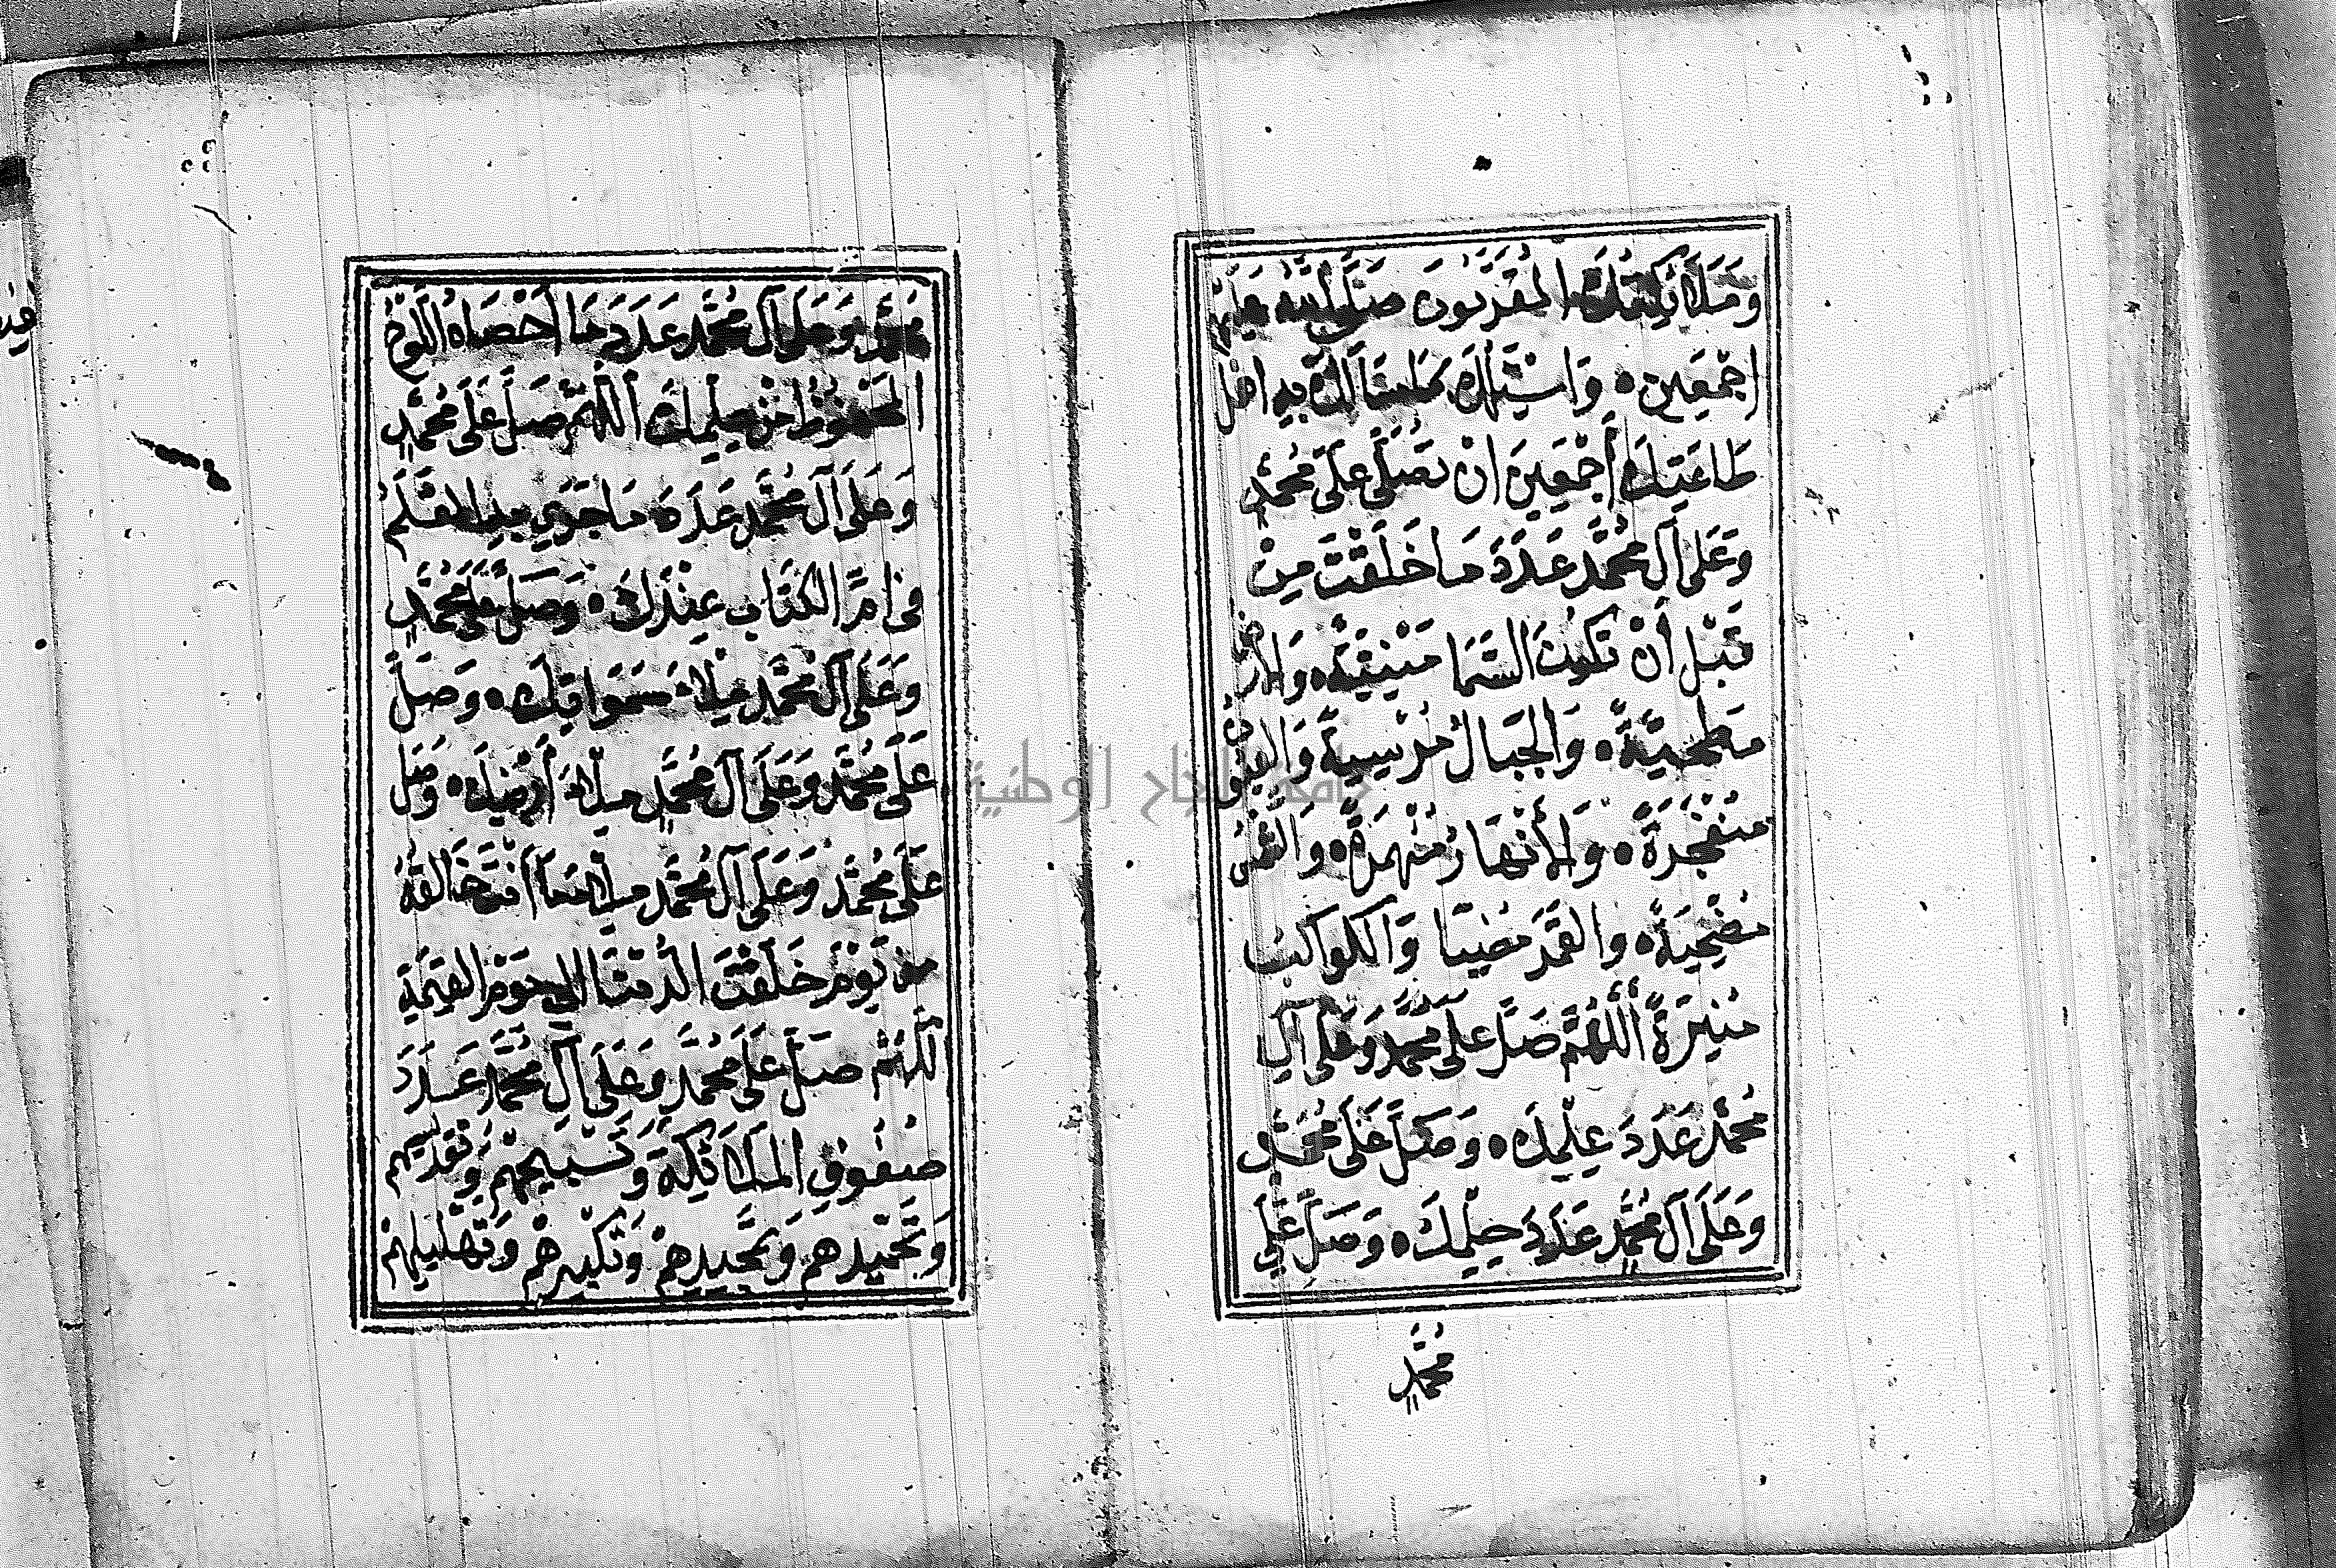 وَمَلَائِكَتُكَ الْمُقَرَّبُونَ صَلَّى اللهُ عَلَيْهِمْ
اَجْمَعِينَ ۰ وَاَسْئَلُكَ بِمَا سَأَلَكَ بِهِ اهل
طَاعَتِكَ أَجْمَعِينَ انْ تُصَلِّيَ عَلَى مُحَمَّدٍ
وَعَلَى آلِ مُحَمَّدٍ عَدَدَ مَا خَلَقْتَ مِنْ
قَبْلِ أَنْ تَكُونَ السَّمَا مَبْنِيَّةً ۰ وَالارض
مَطْحِيَّةً ۰ وَالْجِبَالُ مُرْسِيَةً وَالعيون
مُنْفَجِرَةً ۰ وَالْأَنْهَارُ مُنْهَمِرَةً ۰ وَالشَّمْسُ
مُضْحِيَةً ۰ وَالقَمَرُ مُضِيئًا وَالكَوَاكِبُ
مُنِيرَةً أَللّٰهُمَّ صَلِّ عَلَى مُحَمَّدٍ وَعَلَى آلِ
مُحَمَّدٍ عَدَدَ عِلْمِكَ ۰ وَصَلِّ عَلَى مُحَمَّدٍ
وَعَلَى آلِ مُحَمَّدٍ عَدَدَ حِلْمِكَ ۰ وَصَلِّ عَلَى
مُحَمَّدٍ
مُحَمَّدٍ وَعَلَى آلِ مُحَمَّدٍ عَدَدَ مَا أَحْصَاهُ اللَّوْحُ
الْمَحْفُوظُ مِنْ عِلْمِكَ أَللّٰهُمَّ صَلِّ عَلَى مُحَمَّدٍ
وَعَلَى آلِ مُحَمَّدٍ عَدَدَ مَا جَرَى بِهِ الْقَلَمُ
فِى امِّ الكِتَابِ عِنْدَكَ ۰ وَصَلِّ عَلَى مُحَمَّدٍ
وَعَلَى آلِ مُحَمَّدٍ مِلْاءَ سَمَوَاتِكَ ۰ وَصَلِّ
عَلَى مُحَمَّدٍ وَعَلَى آلِ مُحَمَّدٍ مِلْاءَ أَرْضِكَ ۰ وَصَلِّ
عَلَى مُحَمَّدٍ وَعَلَى آلِ مُحَمَّدٍ مِلْاءَ مَا أَنْتَ خَالِقُهُ
مِنْ يَوْمِ خَلَقْتَ الدُّنْيَا الى يَوْمِ القِيٰمَةِ
أَللّٰهُمَّ صَلِّ عَلَى مُحَمَّدٍ وَعَلَى آلِ مُحَمَّدٍ عَدَدَ
صُفُوفِ الْمَلَائِكَةِ وَتَسْبِيحِهِمْ وَتَقْدِيسِهِمْ
وَتَحْمِيدِهِمْ وَتَمْجِيدِهِمْ وَتَكْبِيرِهِمْ وَتَهْلِيلِهِمْ
جامعة النجاح الوطنية